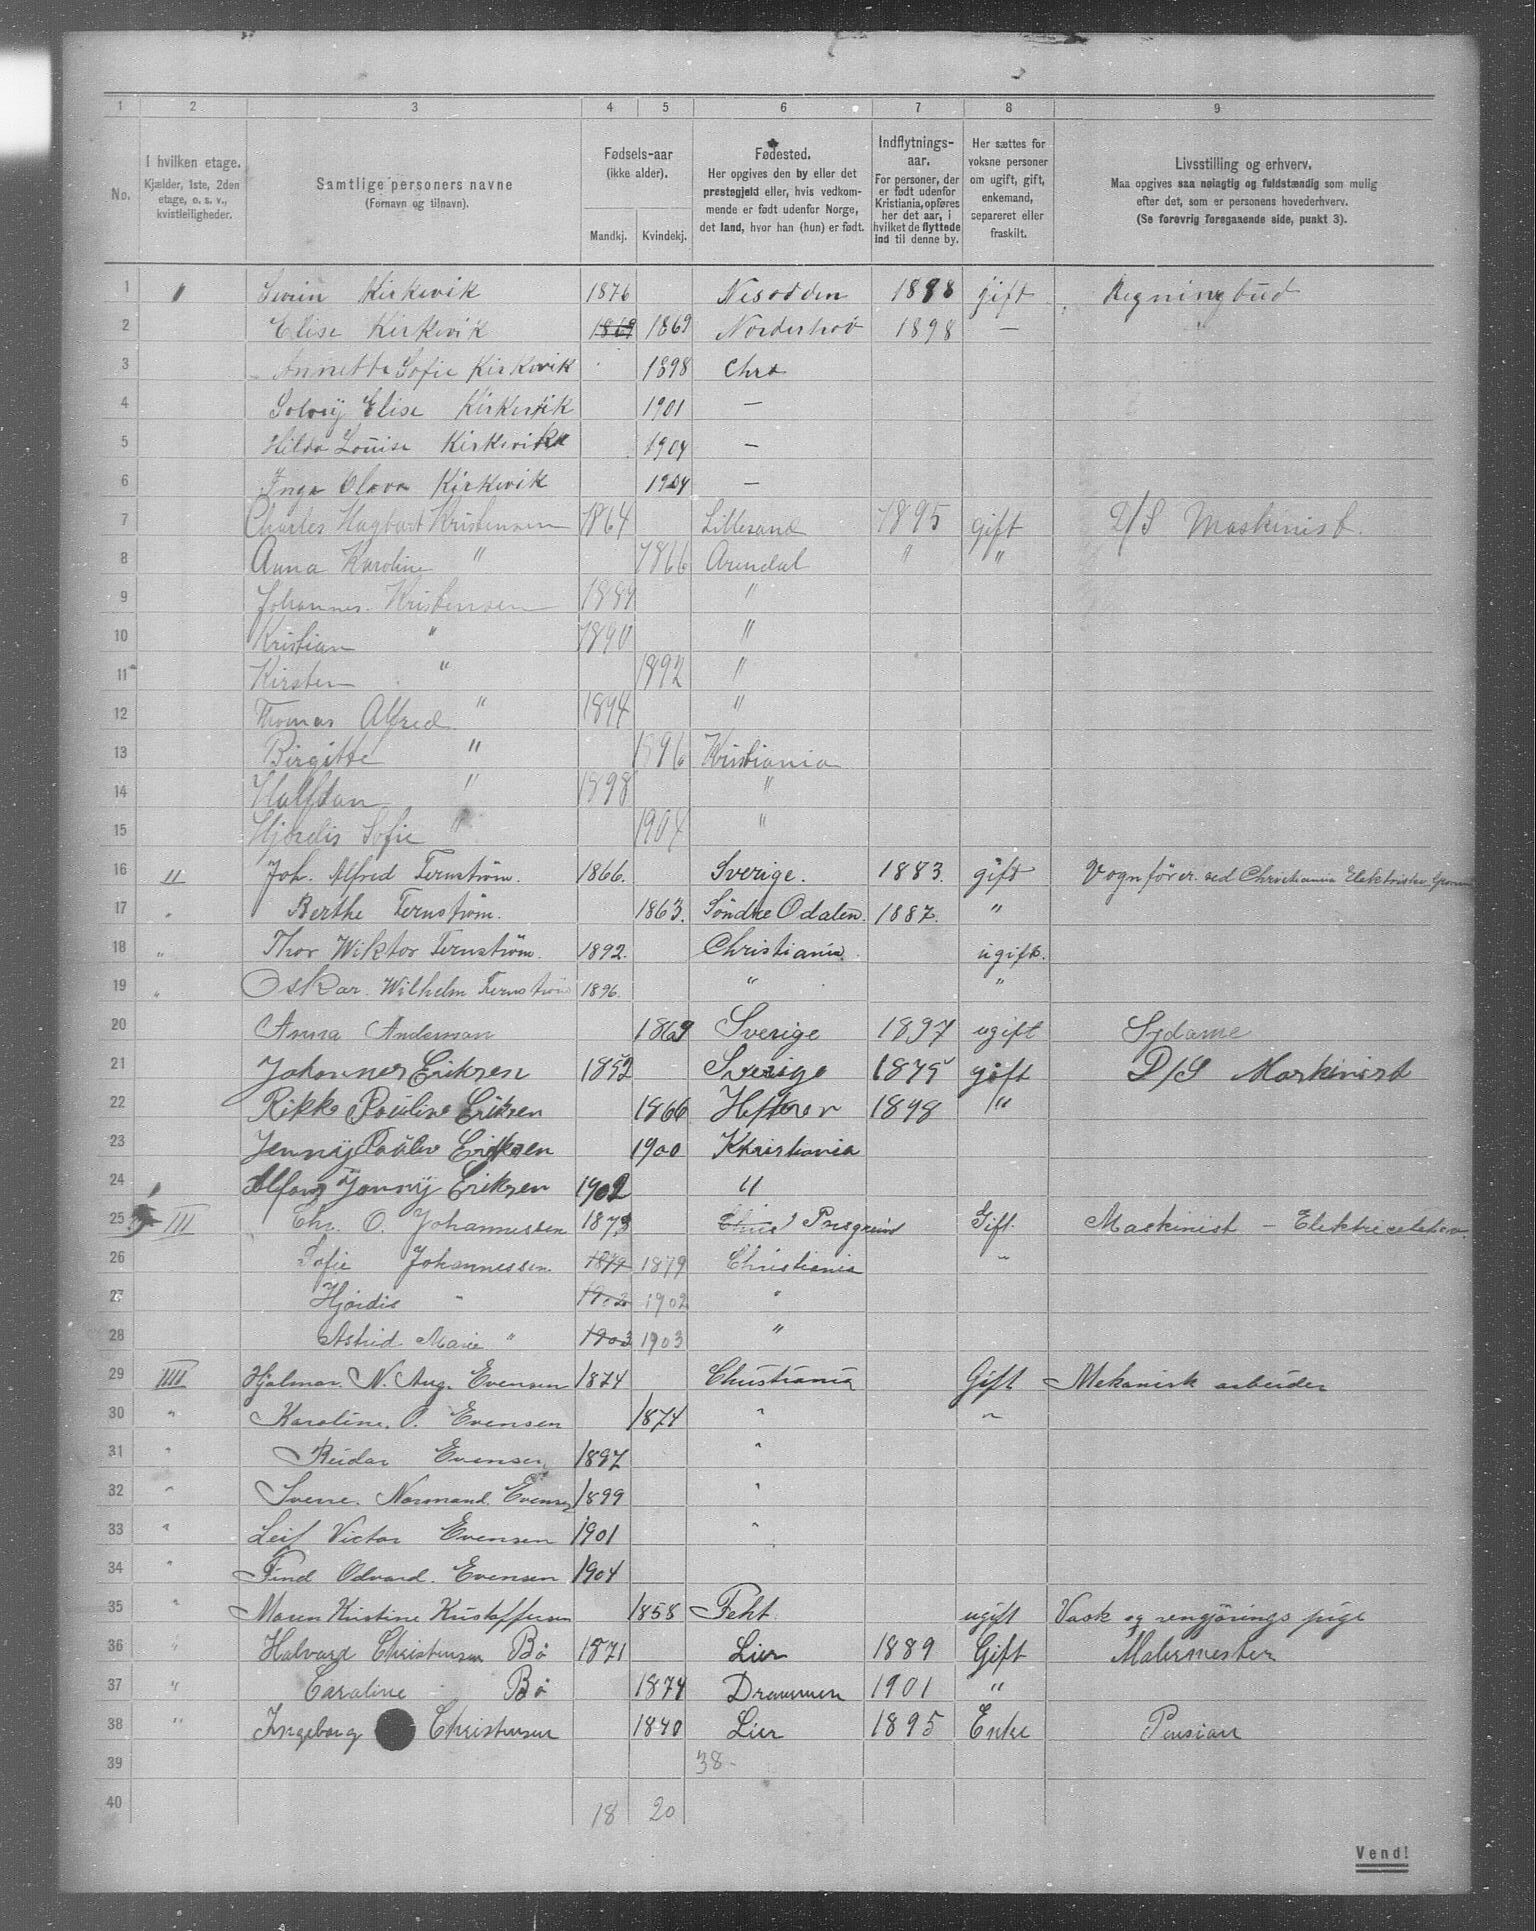 1 2 3 4 5 6 7 8 9
No.
I hvilken etage.
Kjælder, 1ste, 2den
etage, o. s. v.,
kvistleiligheder.
Samtlige personers navne
(Fornavn og tilnavn).
Fødsels-aar
(ikke alder).
Mandkj. Kvindekj.
Fødested.
Her opgives den by eller det
prestegjeld eller, hvis vedkom-
mende er født udenfor Norge,
det land, hvor han (hun) er født.
Indflytnings-
aar.
For personer, der
er født udenfor
Kristiania, opføres
her det aar, i
hvilket de flyttede
ind til denne by.
Her sættes for
voksne personer
om ugift, gift,
enkemand,
separeret eller
fraskilt.
Livsstilling og erhverv.
Maa opgives saa nøiagtig og fuldstændig som mulig
efter det, som er personens hovederhverv.
(Se forøvrig foregaaende side, punkt 3).
1 I Kirkevik 1876 Nesodden 1898 gift Regningbud
2 Elise Kirkevik 1869 1869 Norderhov 1898 —
3 Annetta Sofie Kirkevik 1898 Chra
4 Solveij Elise Kirkevik 1901 —
5 Hilda Louise Kirkevik 1904 —
6 Inga Olava Kirkevik 1904 —
7 Charles Hagbart Kristensen 1864 Lillesand 1895 gift D/S Maskinist.
8 Anna Karoline " 1866 Arendal " "
9 Johannes Kristensen 1889 "
10 Kristian " 1890 "
11 Kirsten " 1892 "
12 Thomas Alfred " 1894 "
13 Birgitte " 1896 Kristiania
14 Halfdan " 1898 "
15 Hjørdis Sofie " 1904 "
16 II Joh. Alfred Ternström. 1866. Sverige. 1883. gift Vognfører ved Christiania Elektriske
17 " Berthe Ternström. 1863. Söndre Odalen. 1887. "
18 " Thor Wiktor Ternström. 1892. Christiania. ugift.
19 " Oskar Wilhelm Ternström 1896. " "
20 Anna Anderson 1869 Sverige 1897 ugift Sydame
21 Johannes Eriksen 1852 Sverige 1875 gift D/S Maskinist
22 Rikke Pauline Eriksen 1866 1898 "
23 Jennij Eriksen 1900 Kristiania
24 Jonnij Eriksen 1902 "
25 III Chr. O. Johannessen 1873 Porsgrund Gift. Maskinist – Elektricitet
26 Sofie Johannessen 1879 1879 Christiania "
27 Hjördis " 1902 1902 "
28 Astrid Marie " 1903 1903 "
29 IIII Hjalmar N. Aug. Evensen 1874 Christiania Gift Mekanisk arbeider
30 " Karoline O. Evensen 1874 " "
31 " Reidar Evensen 1897 "
32 " Sverre Normand Evensen 1899 "
33 " Leif Victor Evensen 1901 "
34 " Find Odvard Evensen 1904
35 " Maren Kristine Kristoffersen 1858 Feht ugift Vask og rengjørings pige
36 " Halvard Christensen Bö 1871 Lier 1889 Gift Malermester
37 " Caroline Bö 1874 Drammen 1901 "
38 " Ingeborg Christensen 1840 Lier 1895 Enke Pension
39 38-
40 18 20
Vend!